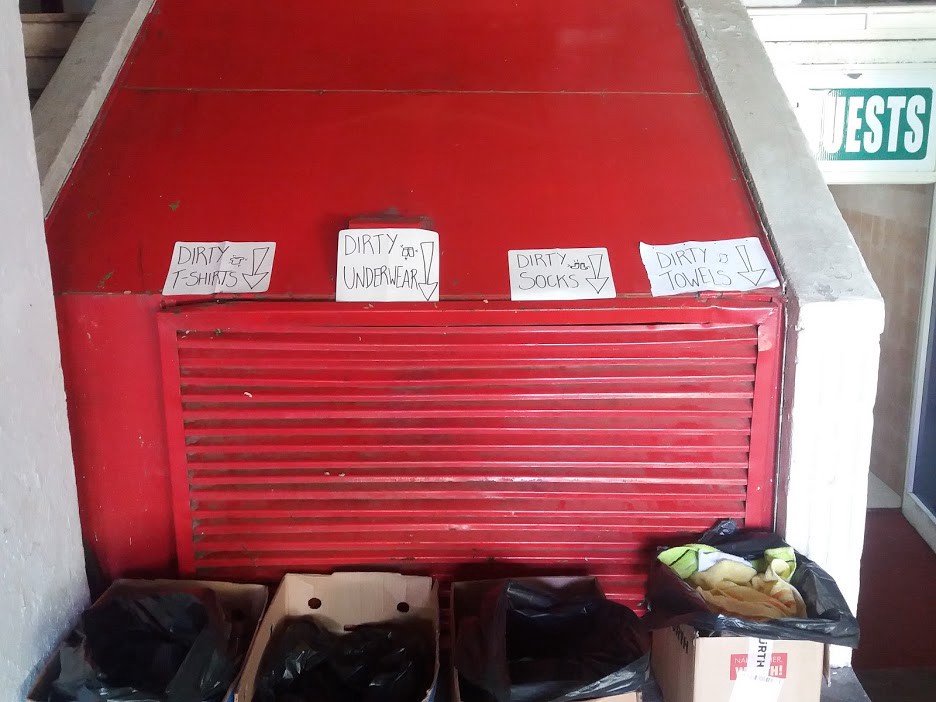 UESTS
DIRTY
T-SHIRTS
DIRTY
UNDERWEAR
DIRTY
SOCKS
DIRTY
TOWELS
ÜRTH